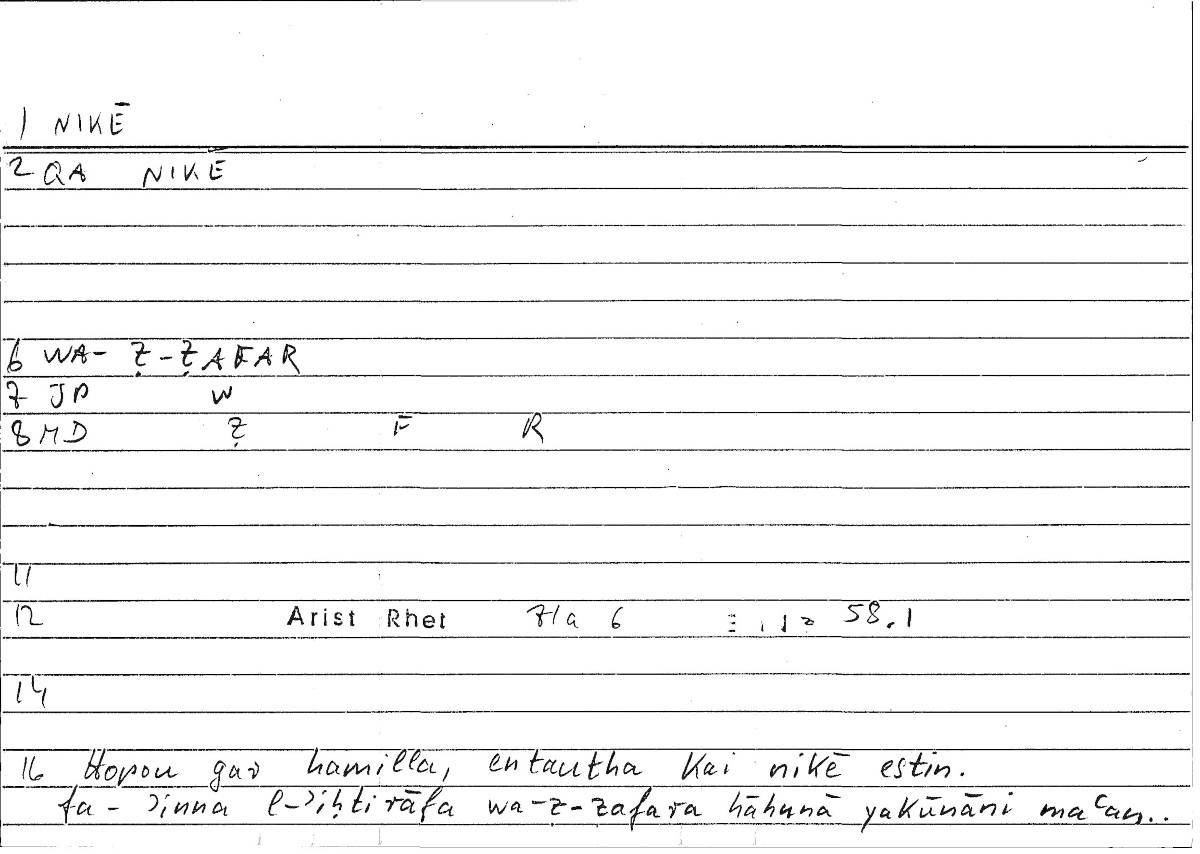 1 NIKĒ
2 QA NIKE
6 WA- Ẓ-ẒAFAR
7 JP W
8 MD Ẓ F R
11
12 Arist Rhet 71a 6 58.1
14
16 Hopou gar hamilla, entautha kai nikē estin.
fa-ʾinna l-ʾiḥtirāfa wa-z-zafara hāhunā yakūnāni maʿan..